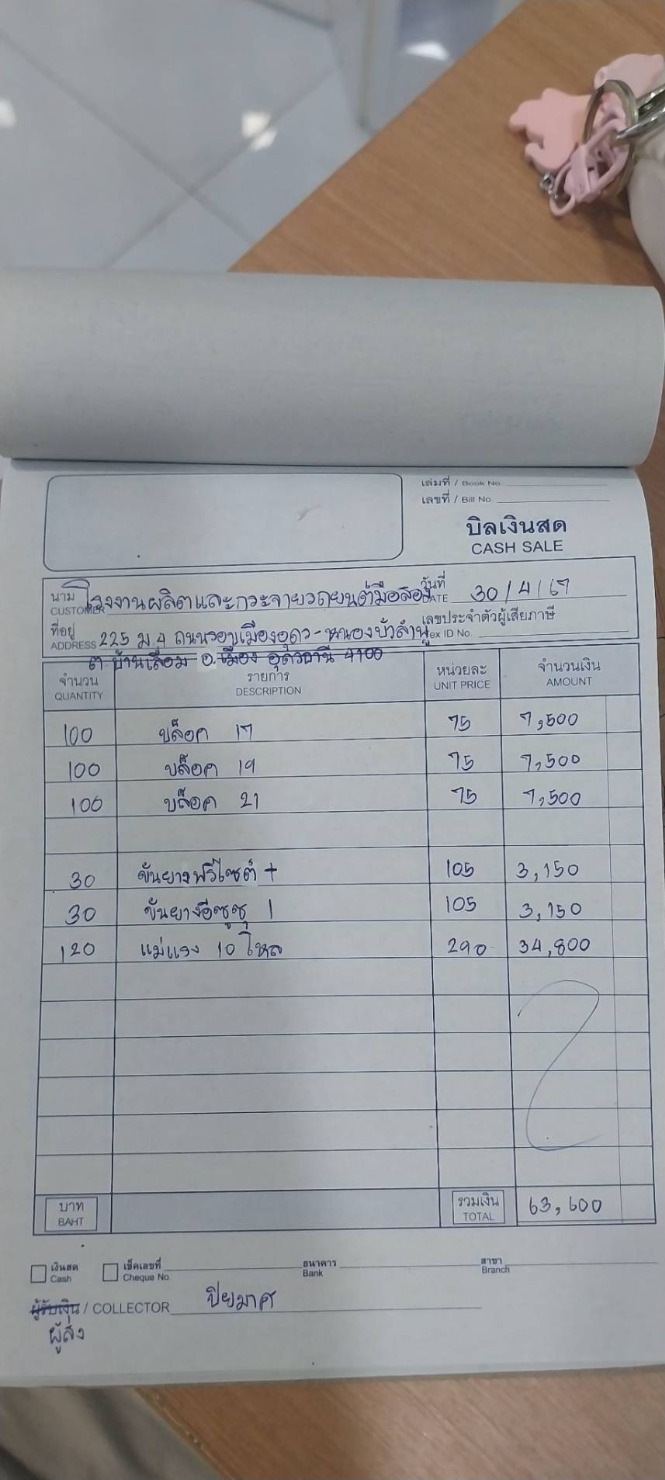 เล่มที่ / Book No.
เลขที่ / Bill No.
บิลเงินสด
CASH SALE
นาม CUSTOMER โรงงานผลิตและกระจายรถยนต์มือสอง วันที่ DATE 30/4/67
ที่อยู่ ADDRESS 225 ม 4 ถนนรอบเมืองอุดร-หนองบัวลำภู เลขประจำตัวผู้เสียภาษี Tax ID No.
ต บ้านเลื่อม อ.เมือง อุดรธานี 4100
จำนวน QUANTITY รายการ DESCRIPTION หน่วยละ UNIT PRICE จำนวนเงิน AMOUNT
100 บล็อค 17 75 7,500
100 บล็อค 19 75 7,500
100 บล็อค 21 75 7,500
30 ขันยางฟรีไซต์ + 105 3,150
30 ขันยางอีซูซุ 1 105 3,150
120 แม่แรง 10 โหล 290 34,800
บาท BAHT รวมเงิน TOTAL 63,600
เงินสด Cash เช็คเลขที่ Cheque No. ธนาคาร Bank สาขา Branch
ผู้รับเงิน / COLLECTOR ปิยมาศ
ผู้สั่ง